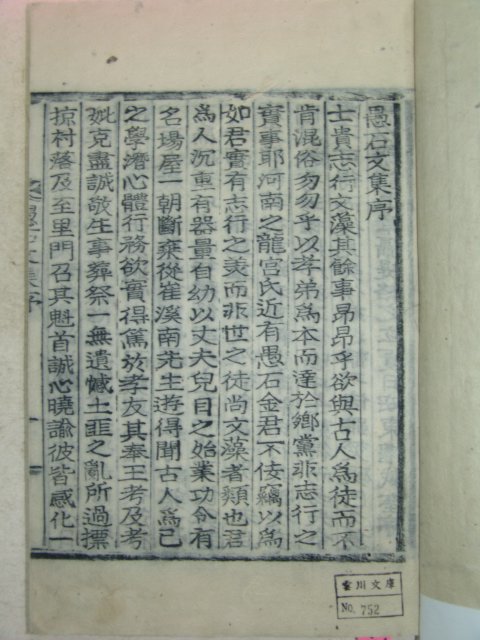 愚石文集序
士貴志行文藻其餘事昂昂乎欲與古人爲徒而不
肯混俗勿勿乎以孝弟爲本而達於鄕黨非志行之
實事耶河南之龍宮氏近有愚石金君不佞竊以爲
如君實有志行之美而非世之徒尚文藻者類也君
爲人沉重有器量自幼以丈夫兒目之始業功令有
名場屋一朝斷棄從崔溪南先生遊得聞古人爲己
之學潛心體行務欲實得篤於孝友其奉王考及考
妣克盡誠敬生事葬祭一無遺憾土匪之亂所過摽
掠村落及至里門召其魁首誠心曉諭彼皆感化一
文集序
一
川文庫
No. 752